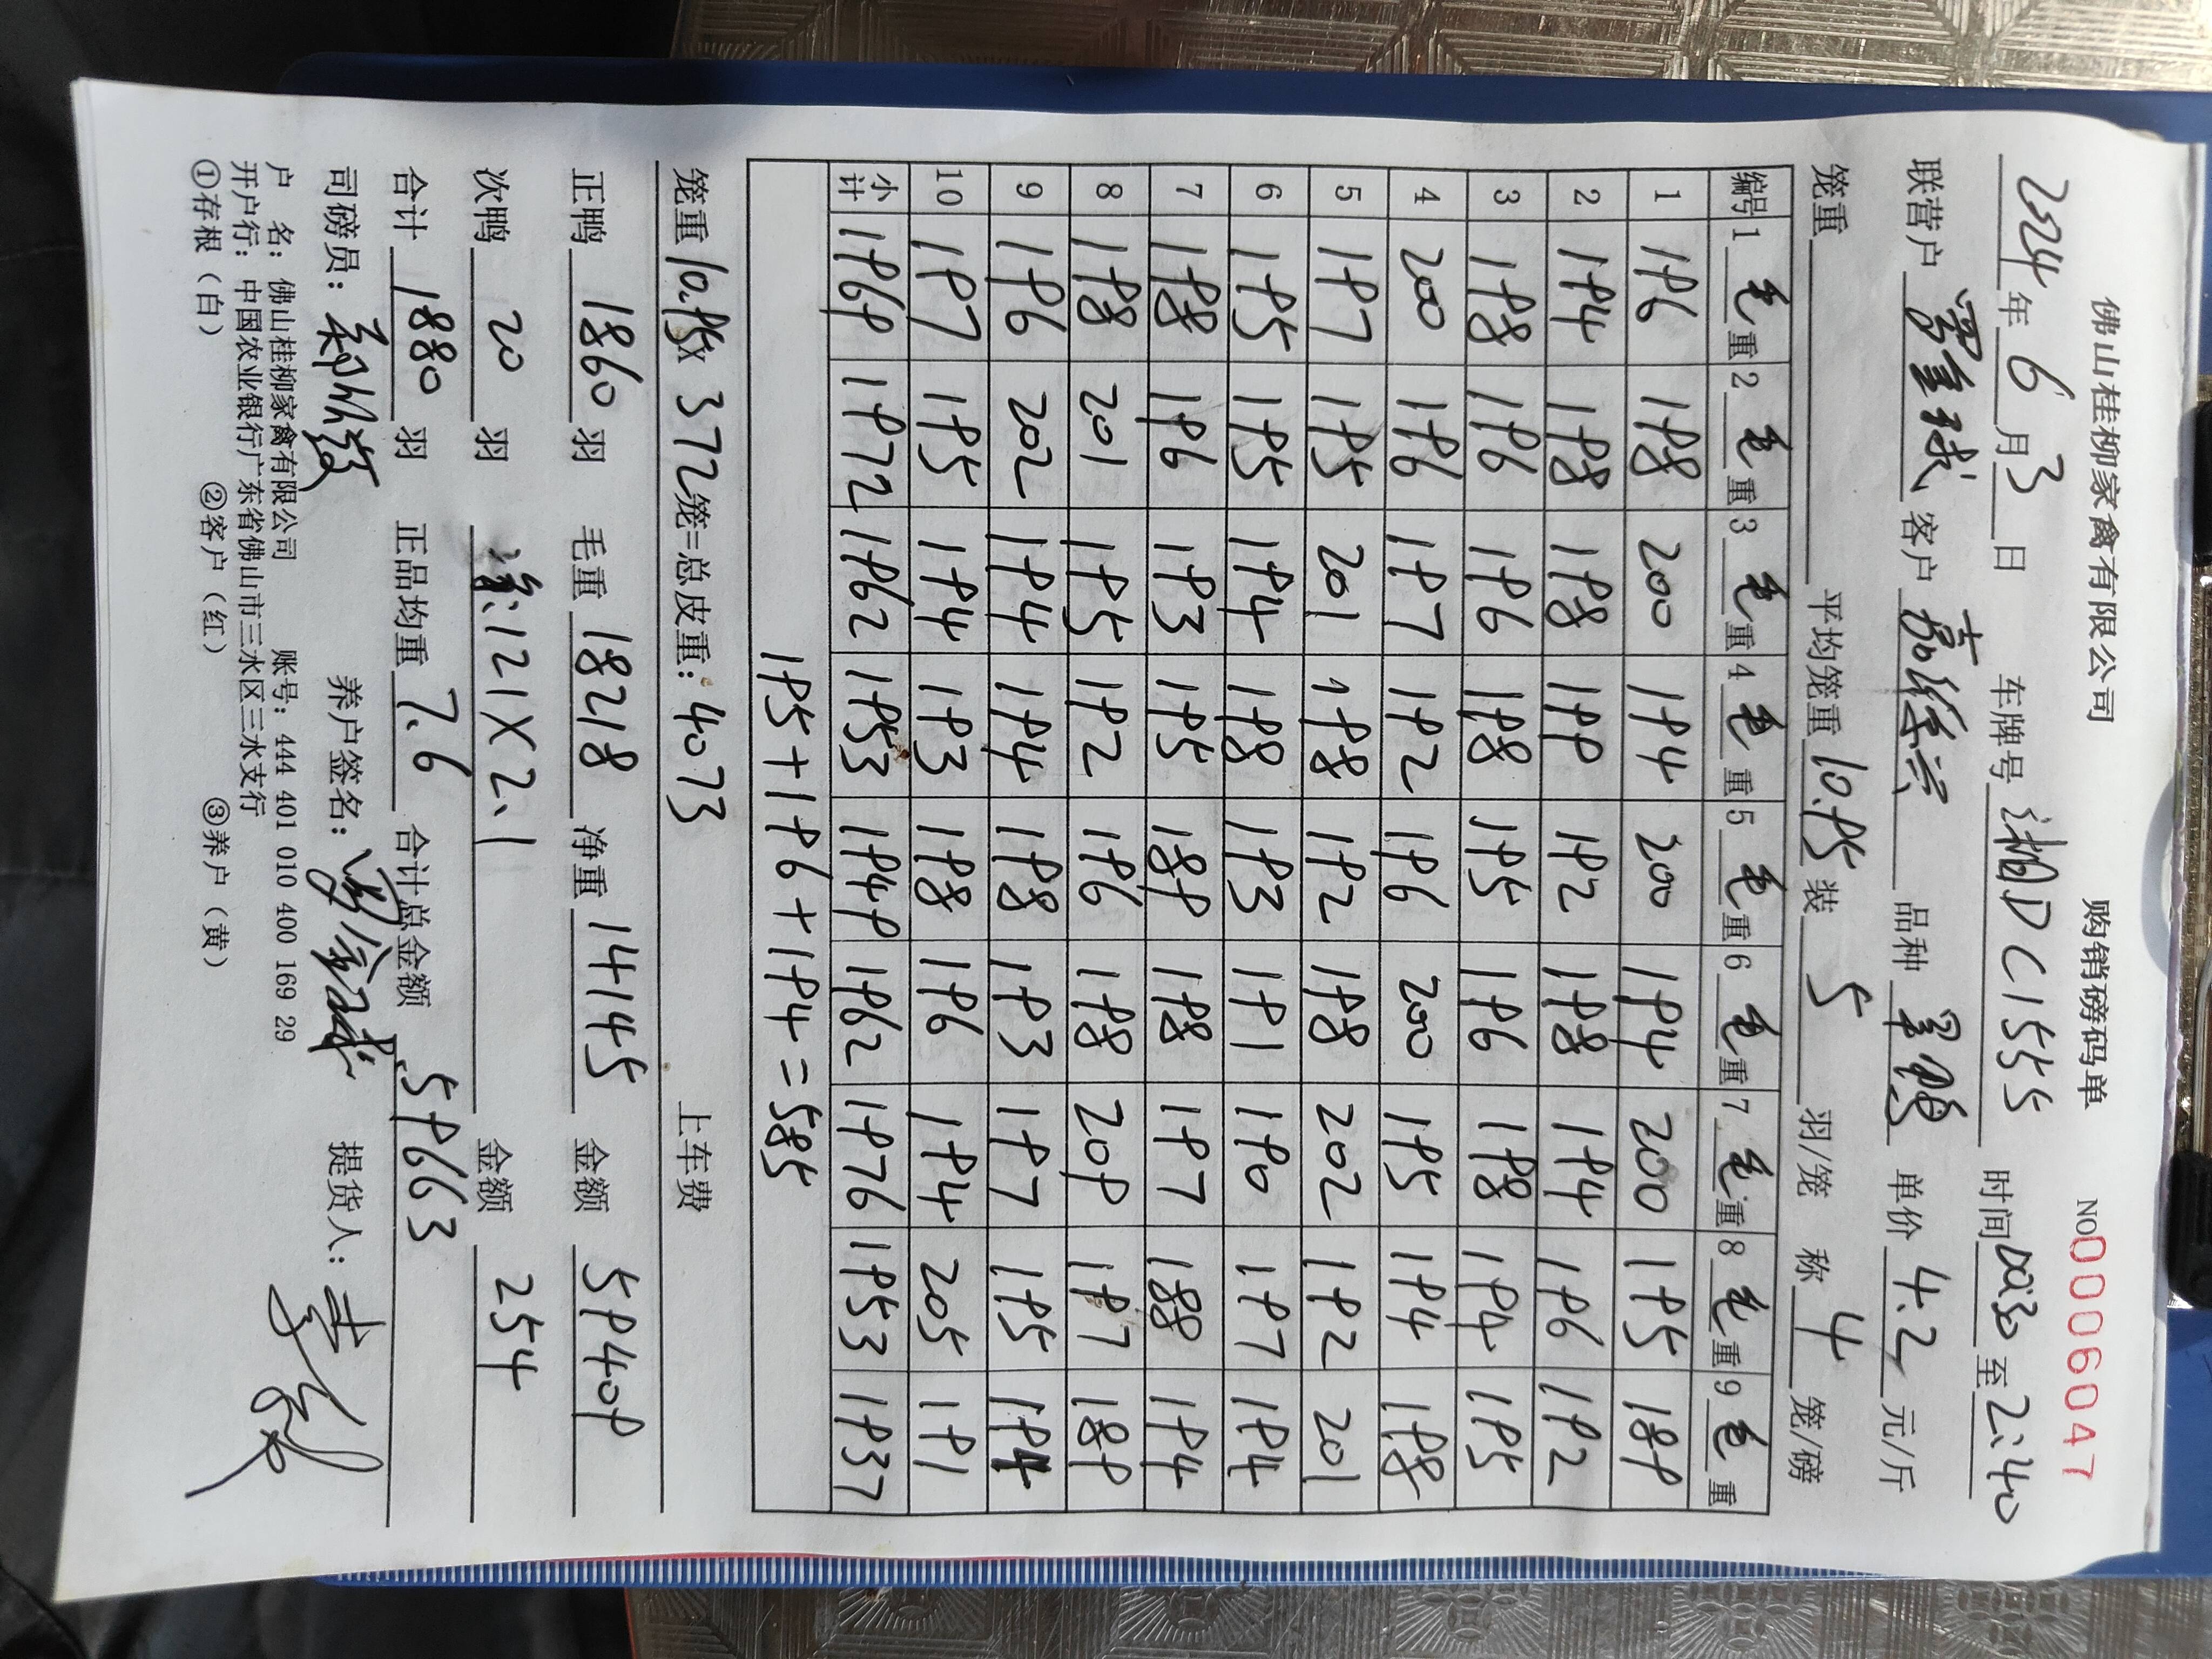 佛山桂柳家禽有限公司 购销磅码单 NO0006047
2024年6月3日 车牌号湘DC1555 时间00:30至2:40
联营户 客户 品种 单价4.2元/斤
笼重 平均笼重10.95装5羽/笼 称4笼/磅
编号 1毛重 2毛重 3毛重 4毛重 5毛重 6毛重 7毛重 8毛重 9毛重
1 196 198 200 194 200 194 200 195 189
2 194 198 198 199 192 198 194 196 192
3 198 196 196 198 195 196 198 194 195
4 200 196 197 192 196 200 195 194 198
5 197 195 201 198 192 198 202 192 201
6 195 195 194 198 193 191 190 197 194
7 198 196 193 195 189 198 197 188 194
8 198 201 195 192 196 198 209 197 189
9 196 202 194 194 198 193 197 195 194
10 197 195 194 193 198 196 194 205 191
小计 1969 1972 1962 1953 1949 1962 1976 1953 1937
195+196+194=585
笼重10.95x372笼=总皮重:4073 上车费
正鸭1860羽 毛重18218 净重14145 金额59409
次鸭20羽 121X2.1 金额254
合计1880羽 正品均重7.6 合计总金额59663
司磅员: 养户签名: 提货人:
户 名:佛山桂柳家禽有限公司 账号:444 401 010 400 169 29
开户行:中国农业银行广东省佛山市三水区三水支行
①存根(白) ②客户(红) ③养户(黄)